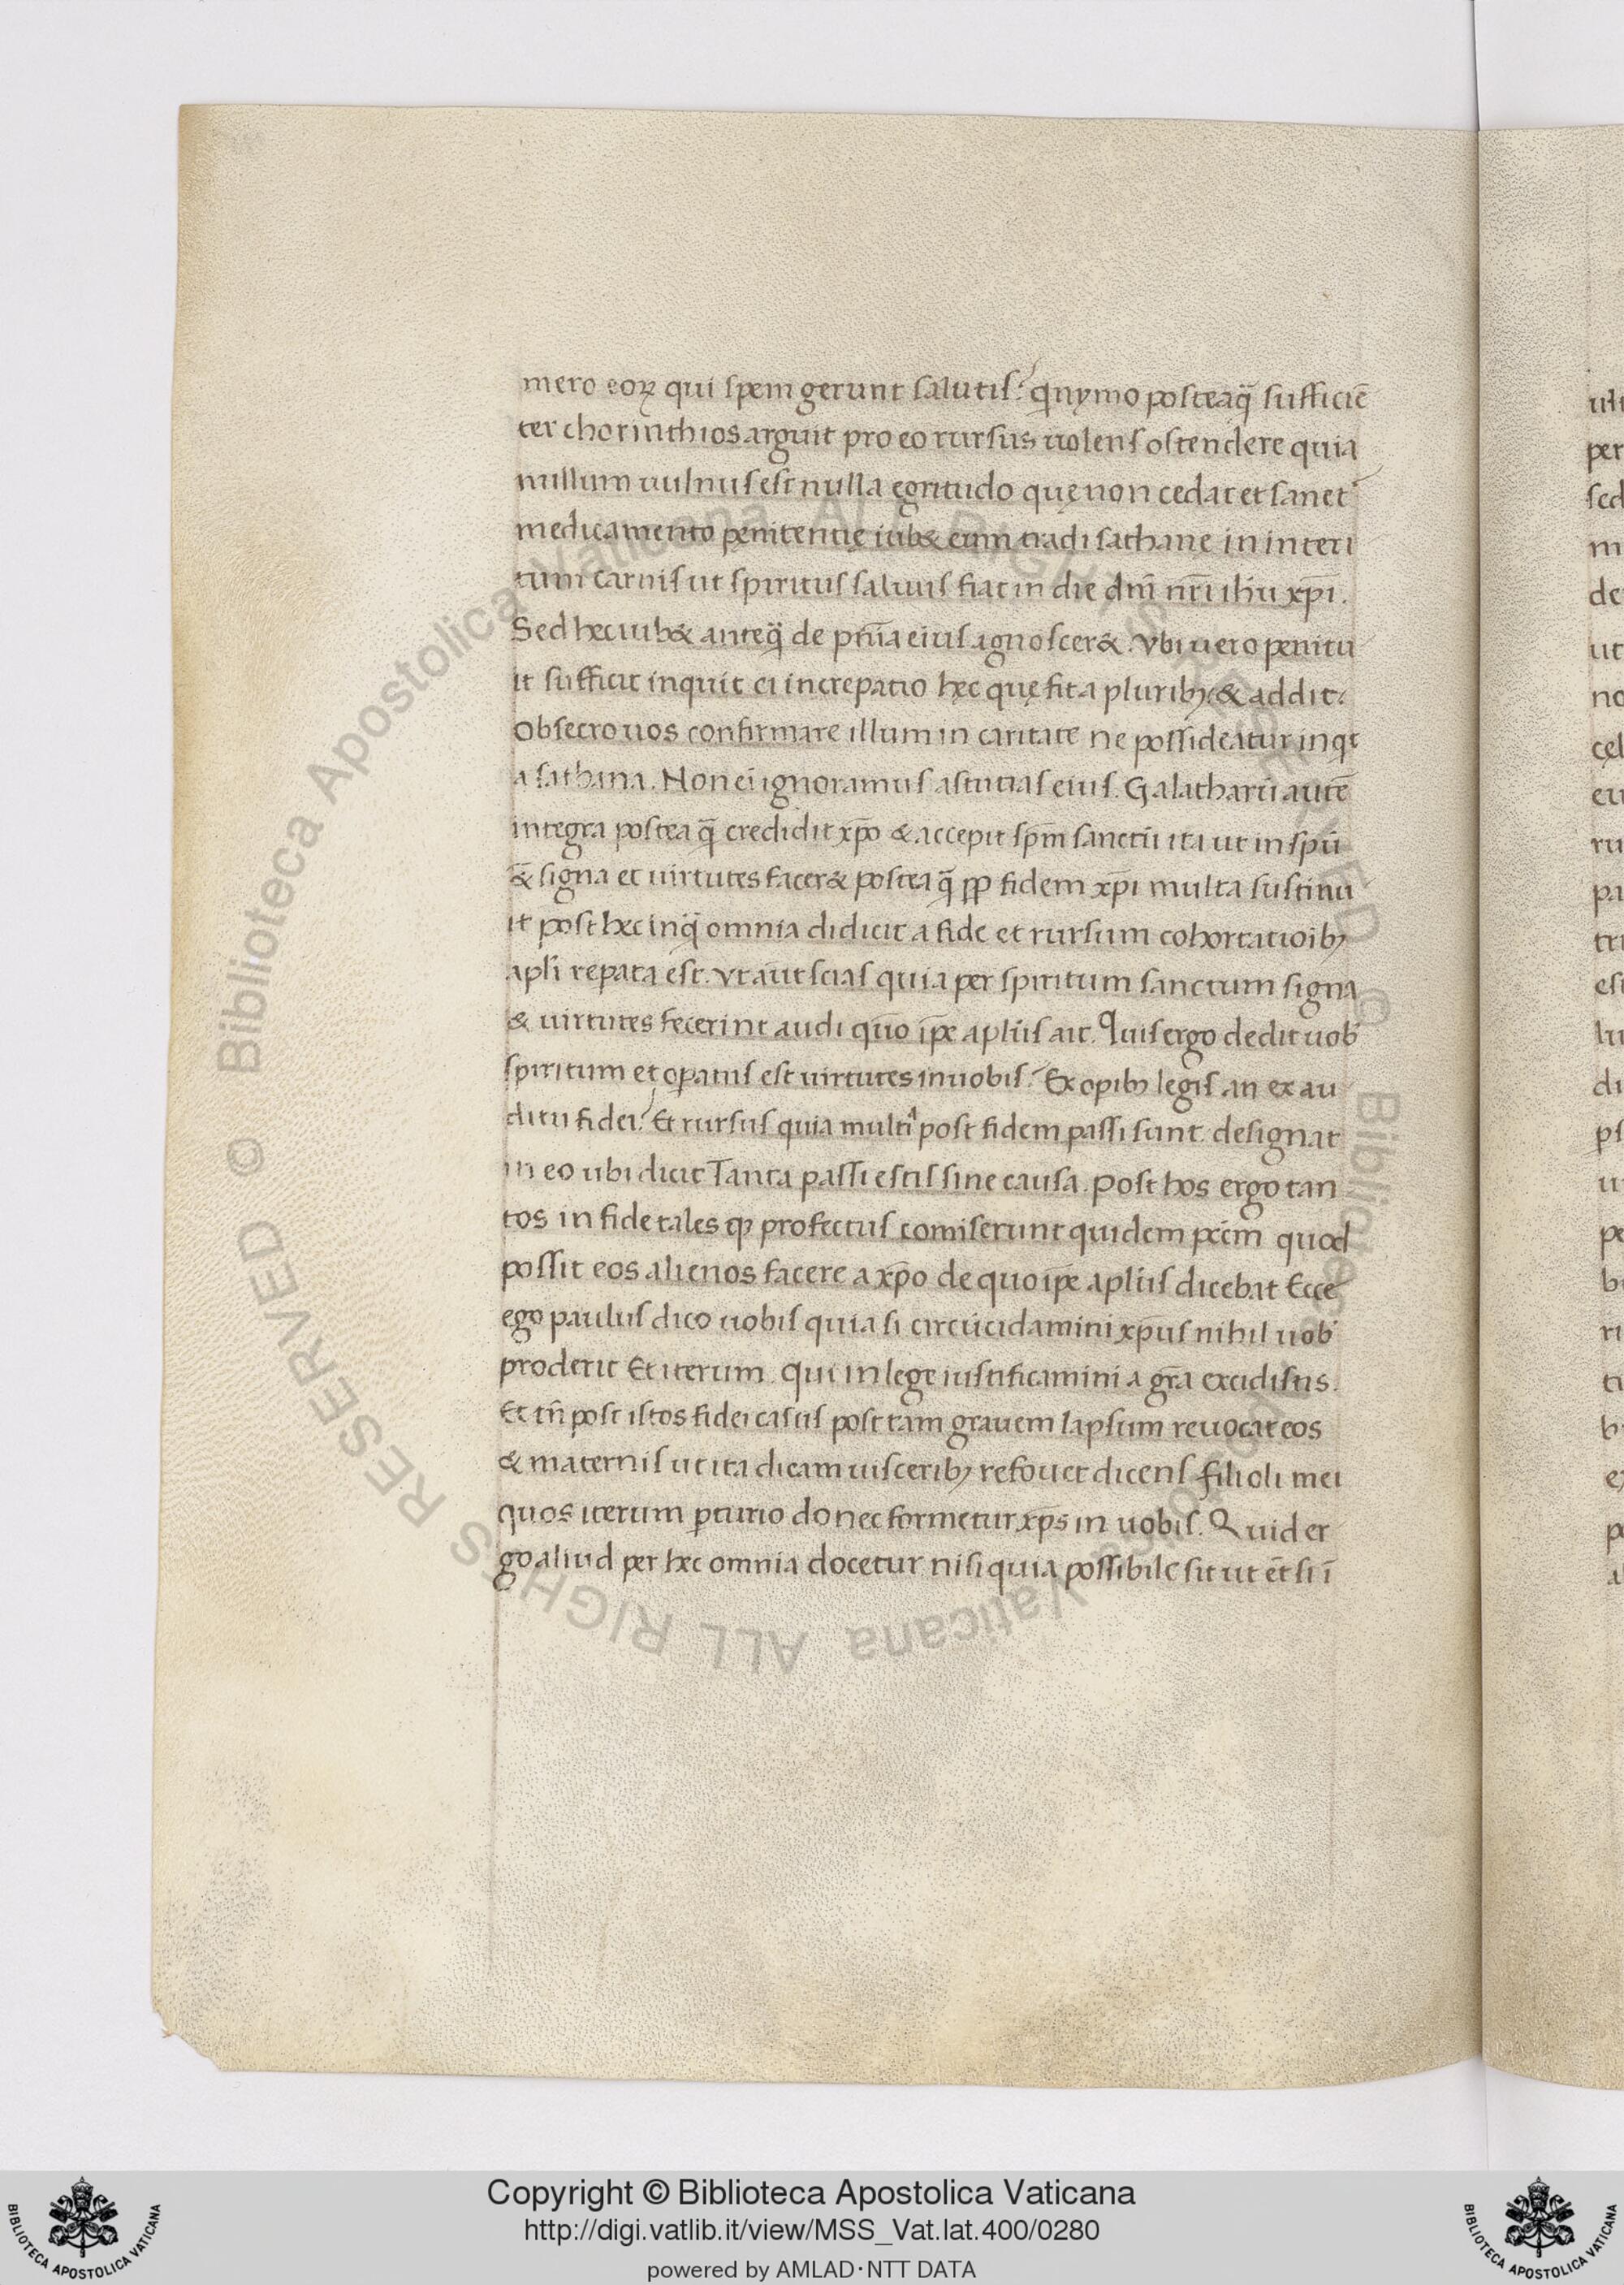 mero eoꝝ qui spem gerunt salutis? qnymo posteaq̄ sufficiē
ter chorinthios arguit pro eo rursus uolens ostendere quia
nullum uulnus est nulla egritudo quę non cedat et sanet
medicamento penitentię iub& eum tradi sathane in interi
tum carnis ut spiritus saluus fiat in die dn̄i nr̄i ihū xp̄i.
Sed hec iub& anteq̄ de pn̄ia eius agnoscer&. Vbi uero penitu
it sufficit inquit ei increpatio hęc quę fit a pluribꝫ. & addit.
Obsecro uos confirmare illum in caritate ne possideatur inqt
a sathana. Non ei ignoramus astutias eius. Galatharū autē
integra postea q̄ credidit xp̄o & accepit sp̄m sanctū ita ut in spū
& signa et uirtutes facer& postea q̄ ꝓp fidem xp̄i multa sustinu
it post hec inq̄ omnia didicit a fide et rursum cohortatioibꝫ
apli repata est. Vt aut scias quia per spiritum sanctum signa
& uirtutes fecerint audi quo ip̄e aplūs ait. Quis ergo dedit uob
spiritum et oꝑatus est uirtutes in uobis? Ex opibꝫ legis an ex au
ditu fidei? Et rursus quia multa post fidem passi sunt designat
in eo ubi dicit Tanta passi estis sine causa. Post hos ergo tan
tos in fide tales qꝫ profectus comiserunt quidem pccm quod
possit eos alienos facere a xp̄o de quo ip̄e aplūs dicebat Ecce
ego paulus dico uobis quia si circūcidamini xp̄us nihil uob
proderit Et iterum. Qui in lege iustificamini a gr̄a excidistis.
Et tn̄ post istos fidei casus post tam grauem lapsum reuocat eos
& maternis ut ita dicam uisceribꝫ refouet dicens filioli mei
quos iterum ꝑturio donec formetur xp̄s in uobis. Quid er
go aliud per hec omnia docetur nisi quia possibile sit ut et̄ si ī
Copyright © Biblioteca Apostolica Vaticana
http://digi.vatlib.it/view/MSS_Vat.lat.400/0280
powered by AMLAD·NTT DATA
BIBLIOTECA APOSTOLICA VATICANA
BIBLIOTECA APOSTOLICA VATICANA
© Biblioteca Apostolica Vaticana ALL RIGHTS RESERVED © Biblioteca Apostolica Vaticana ALL RIGHTS RESERVED